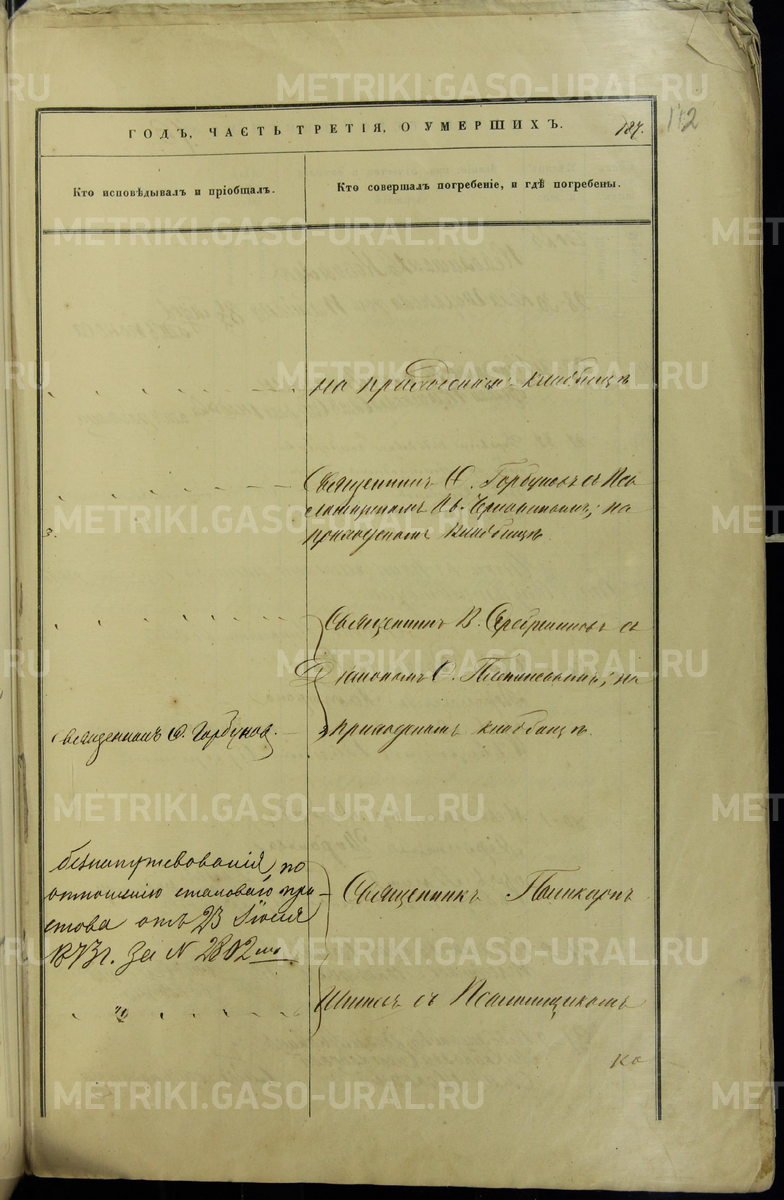 ГОДЪ, ЧАСТЬ ТРЕТІЯ, О УМЕРШИХЪ.
187.
112
Кто исповѣдывалъ и пріобщалъ.
Кто совершалъ погребеніе, и гдѣ погребены.
на приходскомъ кладбищѣ
Священникъ Ѳ. Горбуновъ съ Пса
ломщикомъ на
приходскомъ кладбищѣ
Священникъ В. Серебренниковъ съ
Діакономъ Ѳ. на
приходскомъ кладбищѣ.
Священникъ Ѳ. Горбуновъ.
безъ напутствованія, по
отношенію становаго при
става отъ 23 Іюня
1873 г. за N 2802мъ
Священникъ Поликарпъ
съ Псаломщикомъ
Ко
METRIKI.GASO-URAL.RU